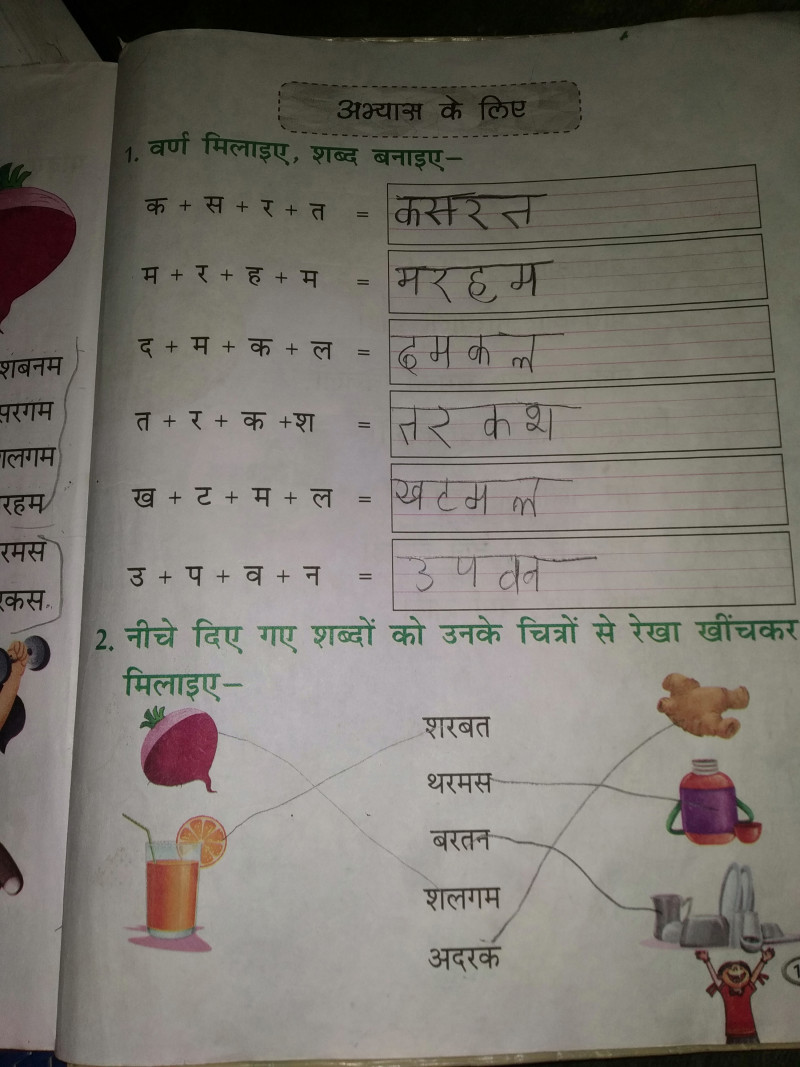 अभ्यास के लिए
1. वर्ण मिलाइए, शब्द बनाइए–
क + स + र + त = कसरत
म + र + ह + म = मरहम
द + म + क + ल = दमकल
त + र + क +श = तरकश
ख + ट + म + ल = खटमल
उ + प + व + न = उपवन
2. नीचे दिए गए शब्दों को उनके चित्रों से रेखा खींचकर
मिलाइए–
शरबत
थरमस
बरतन
शलगम
अदरक
शबनम